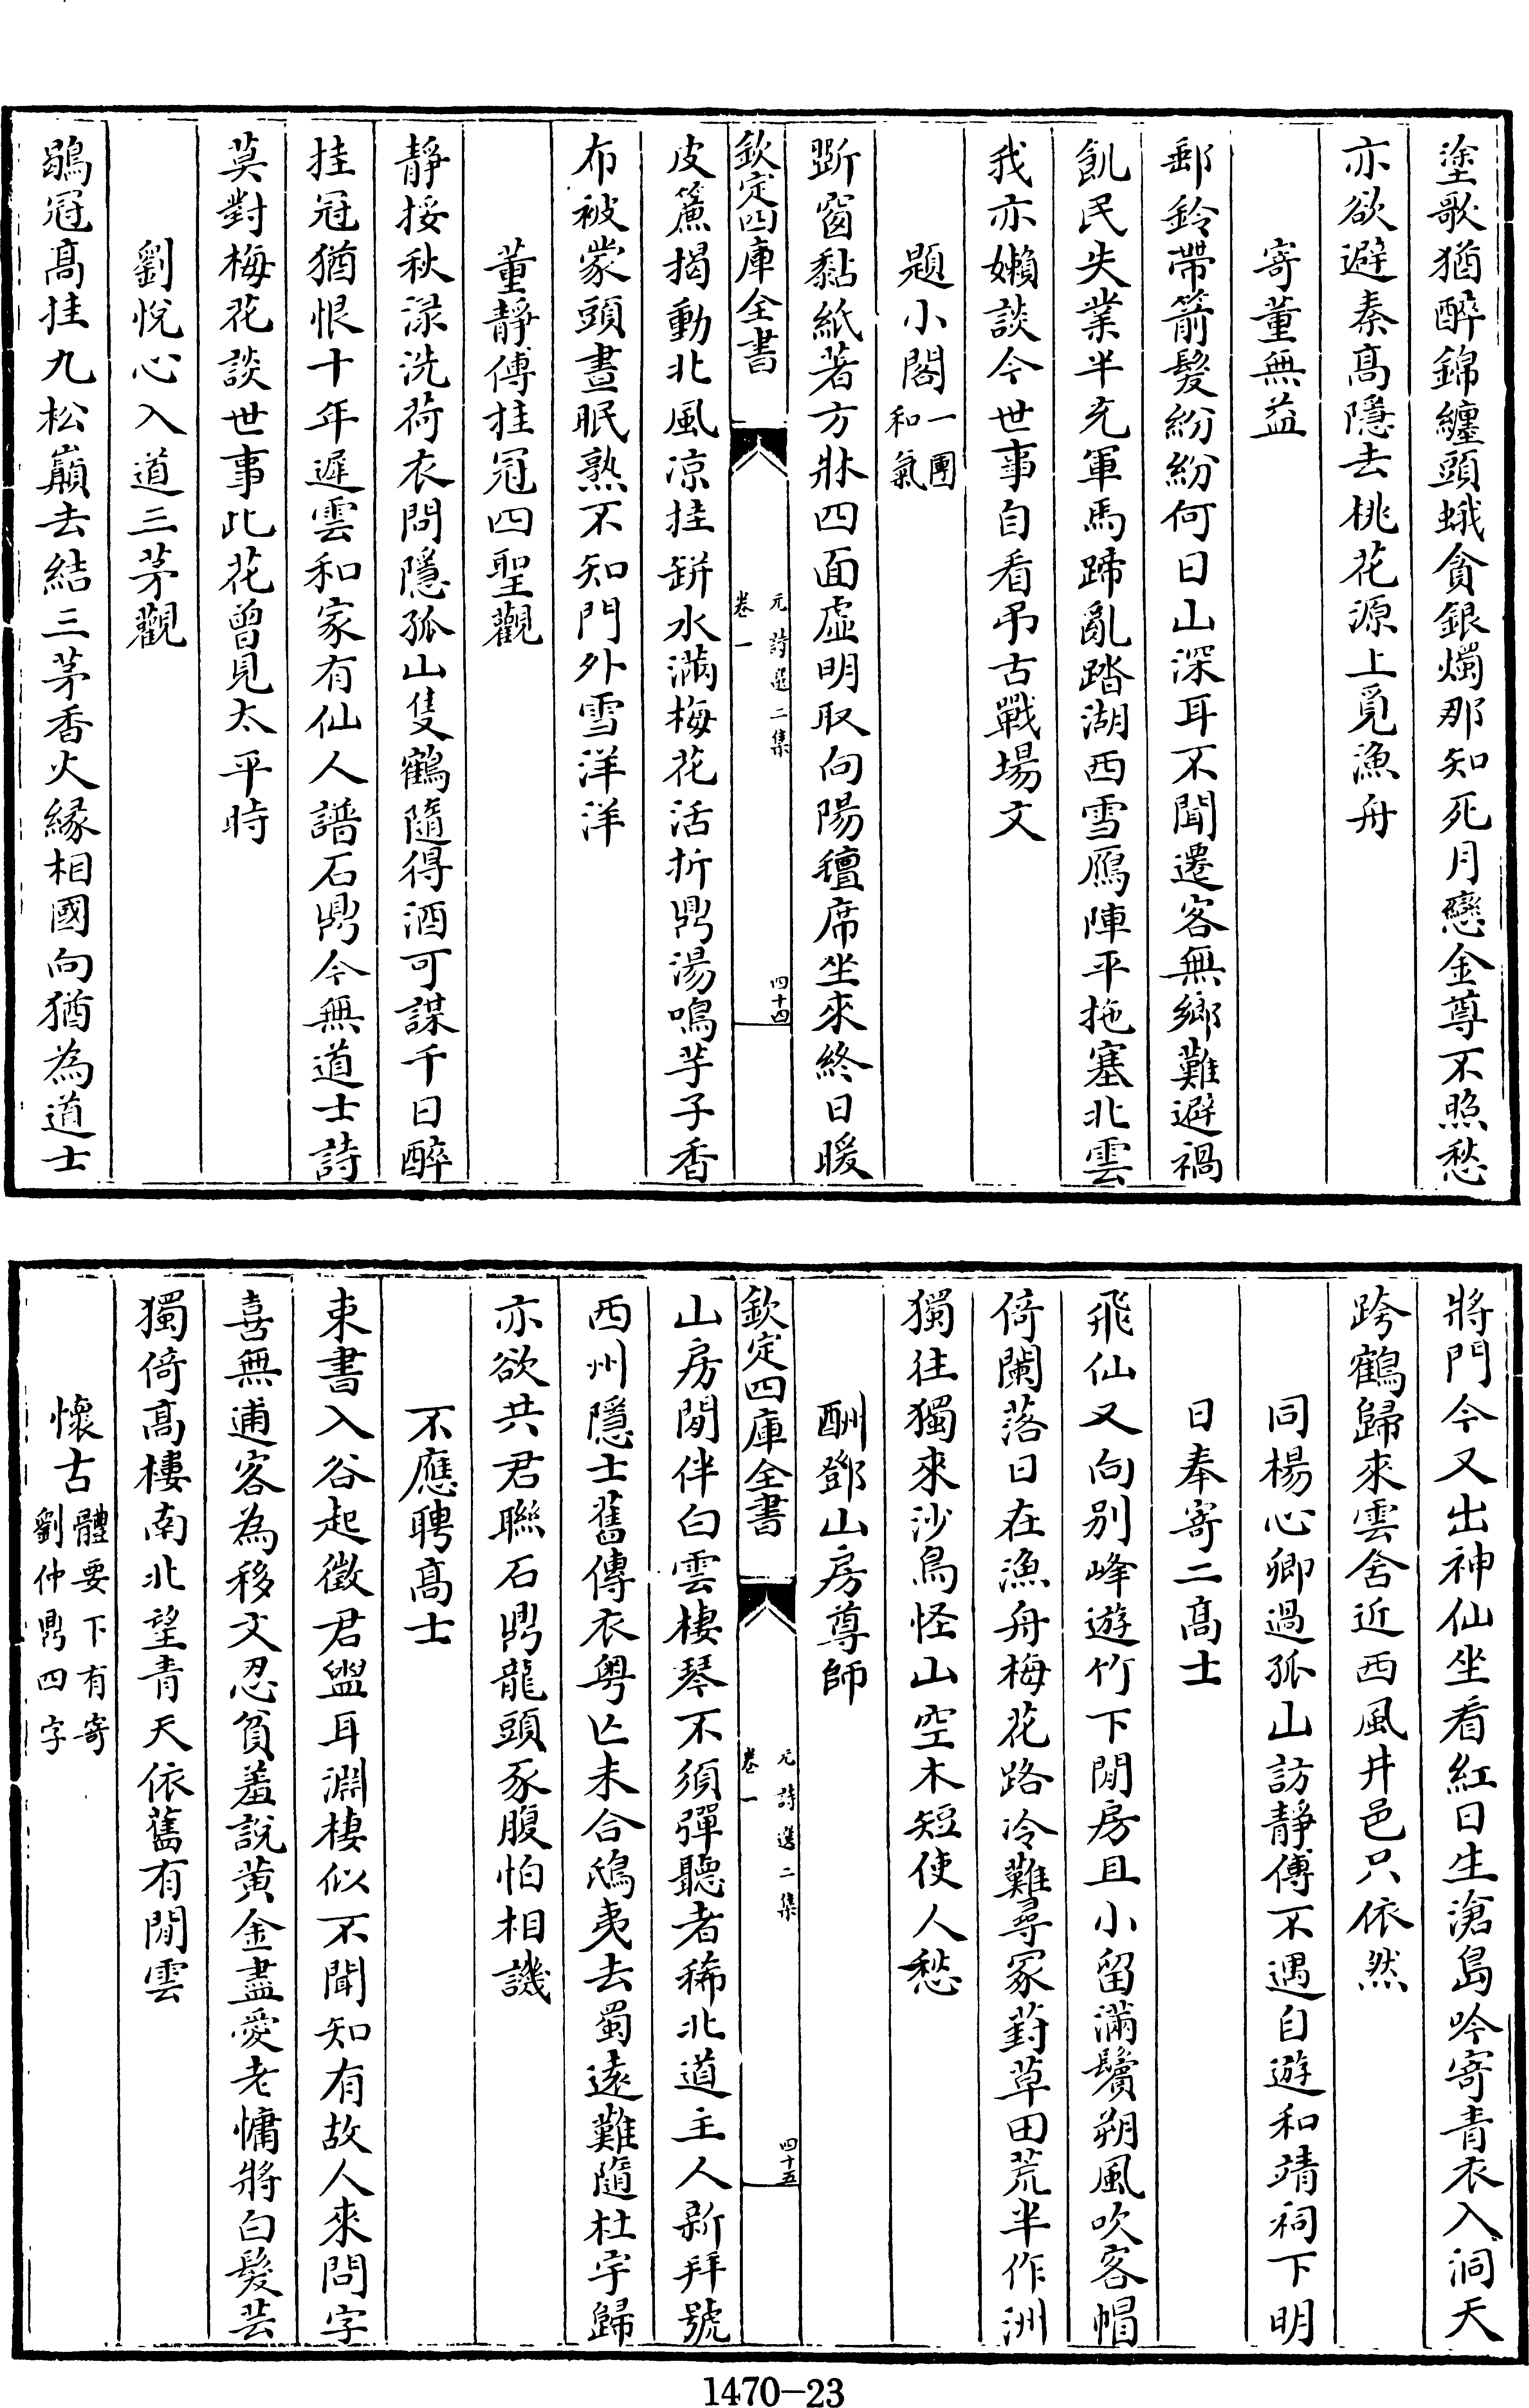 塗歌猶醉錦纏頭蛾貪銀燭那知死月戀金尊不照愁
亦欲避秦髙隱去桃花源上覓漁舟
寄董無益
郵鈴帶箭髮紛紛何日山深耳不聞遷客無鄉難避禍
飢民失業半充軍馬蹄亂踏湖西雪鴈陣平拖塞北雲
我亦嬾談今世事自看弔古戰場文
題小閣一團和氣
斲窗黏紙著方牀四面虛明取向陽氊席坐來終日暖
欽定四庫全書
元詩選二集
卷一
四十四
皮簾揭動北風凉挂缾水滿梅花活折鼎湯鳴芋子香
布被蒙頭晝眠熟不知門外雪洋洋
董靜傅挂冠四聖觀
靜挼秋渌洗荷衣問隱孤山隻鶴隨得酒可謀千日醉
挂冠猶恨十年遲雲和家有仙人譜石鼎今無道士詩
莫對梅花談世事此花曾見太平時
劉悅心入道三茅觀
鶡冠髙挂九松巔去結三茅香火緣相國向猶為道士
將門今又出神仙坐看紅日生滄島吟寄青衣入洞天
跨鶴歸來雲舍近西風井邑只依然
同楊心卿過孤山訪靜傅不遇自遊和靖祠下明
日奉寄二髙士
飛仙又向別峰遊竹下閒房且小留滿鬢朔風吹客帽
倚闌落日在漁舟梅花路冷難尋冢葑草田荒半作洲
獨往獨來沙鳥怪山空木短使人愁
酬鄧山房尊師
欽定四庫全書
元詩選二集
卷一
四十五
山房閒伴白雲棲琴不須彈聽者稀北道主人新拜號
西州隱士舊傳衣粤亡未合鴟夷去蜀遠難隨杜宇歸
亦欲共君聯石鼎龍頭豕腹怕相譏
不應聘髙士
束書入谷起徵君盥耳淵棲似不聞知有故人來問字
喜無逋客為移文忍貧羞說黃金盡愛老慵將白髮芸
獨倚髙樓南北望青天依舊有閒雲
懷古體要下有寄劉仲鼎四字
1470—23